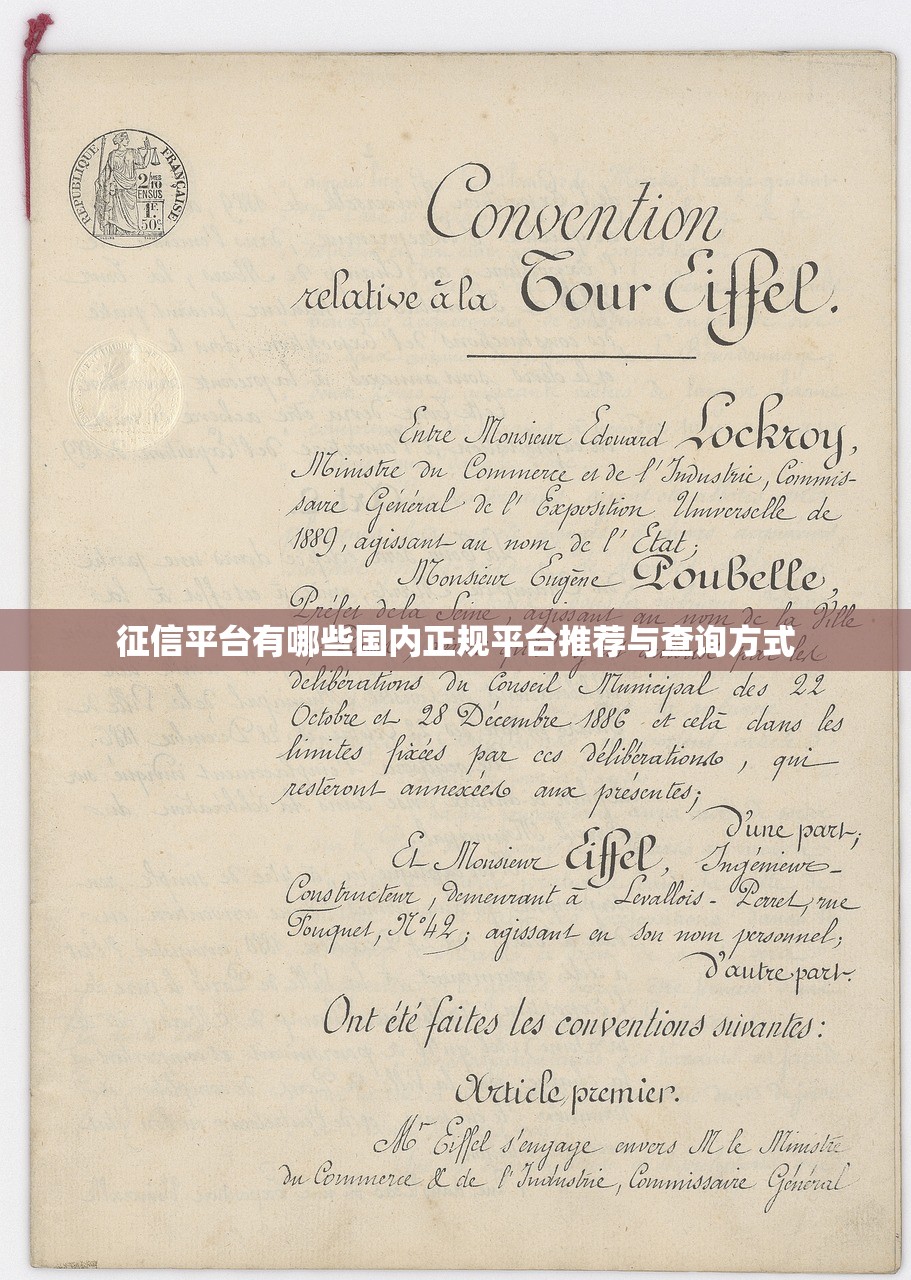 RÉPUBLIQUE FRANÇAISE
2/10
EN SUS
1F.
50c
Convention
relative à la Tour Eiffel.
Entre Monsieur Edouard Lockroy,
Ministre du Commerce et de l'Industrie, Commis-
saire Général de l'Exposition Universelle de
1889, agissant au nom de l'Etat;
Monsieur Eugène Poubelle,
Préfet de la Seine, agissant au nom de la Ville
征信平台有哪些国内正规平台推荐与查询方式
par les
délibérations du Conseil Municipal des 22
Octobre et 28 Décembre 1886 et celà dans les
limites fixées par ces délibérations, qui
resteront annexées aux présentes;
d'une part;
Et Monsieur Eiffel, Ingénieur-
Constructeur, demeurant à Levallois-Perret, rue
Fouquet, N° 42; agissant en son nom personnel;
d'autre part.
Ont été faites les conventions suivantes:
Article premier.
Mr Eiffel s'engage envers M le Ministre
du Commerce & de l'Industrie, Commissaire Général